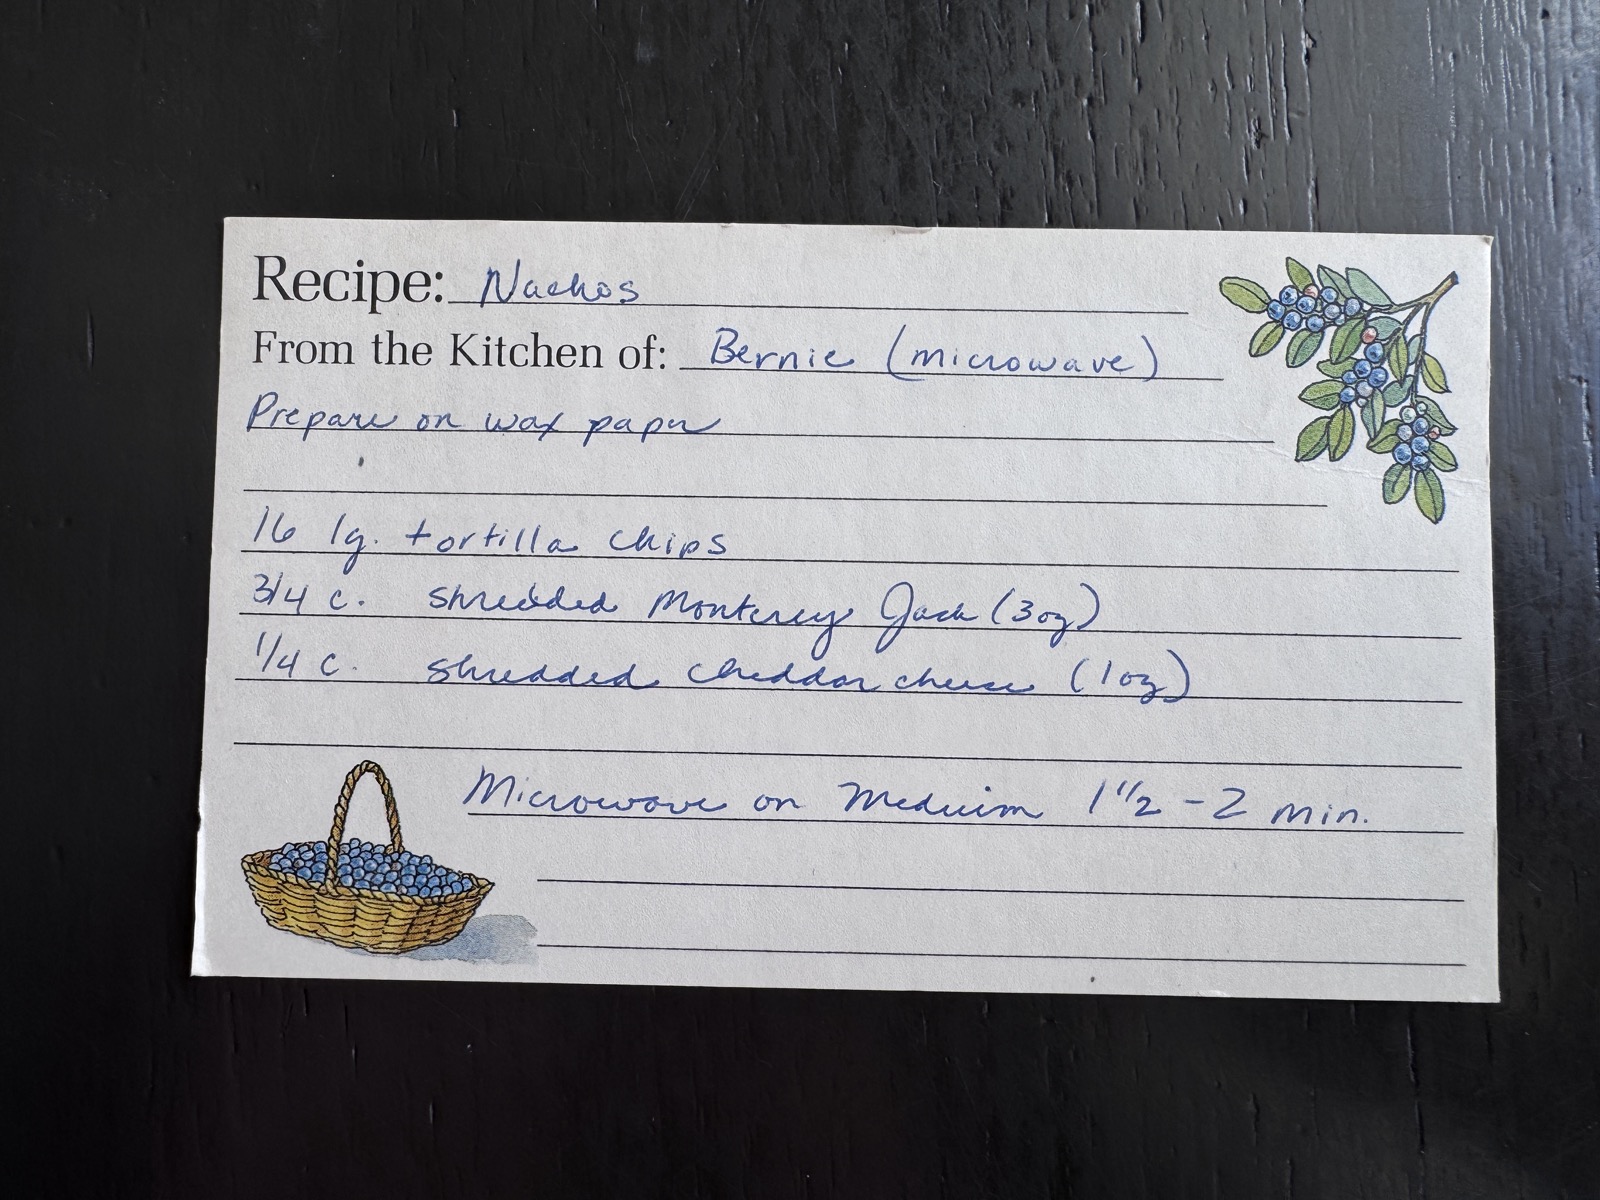 Recipe: Nachos
From the Kitchen of: Bernie (microwave)
Prepare on wax paper
16 lg. tortilla chips
3/4 c. shredded Monterey Jack (3oz)
1/4 c. shredded cheddar cheese (1oz)
Microwave on Meduim 1 1/2 - 2 min.